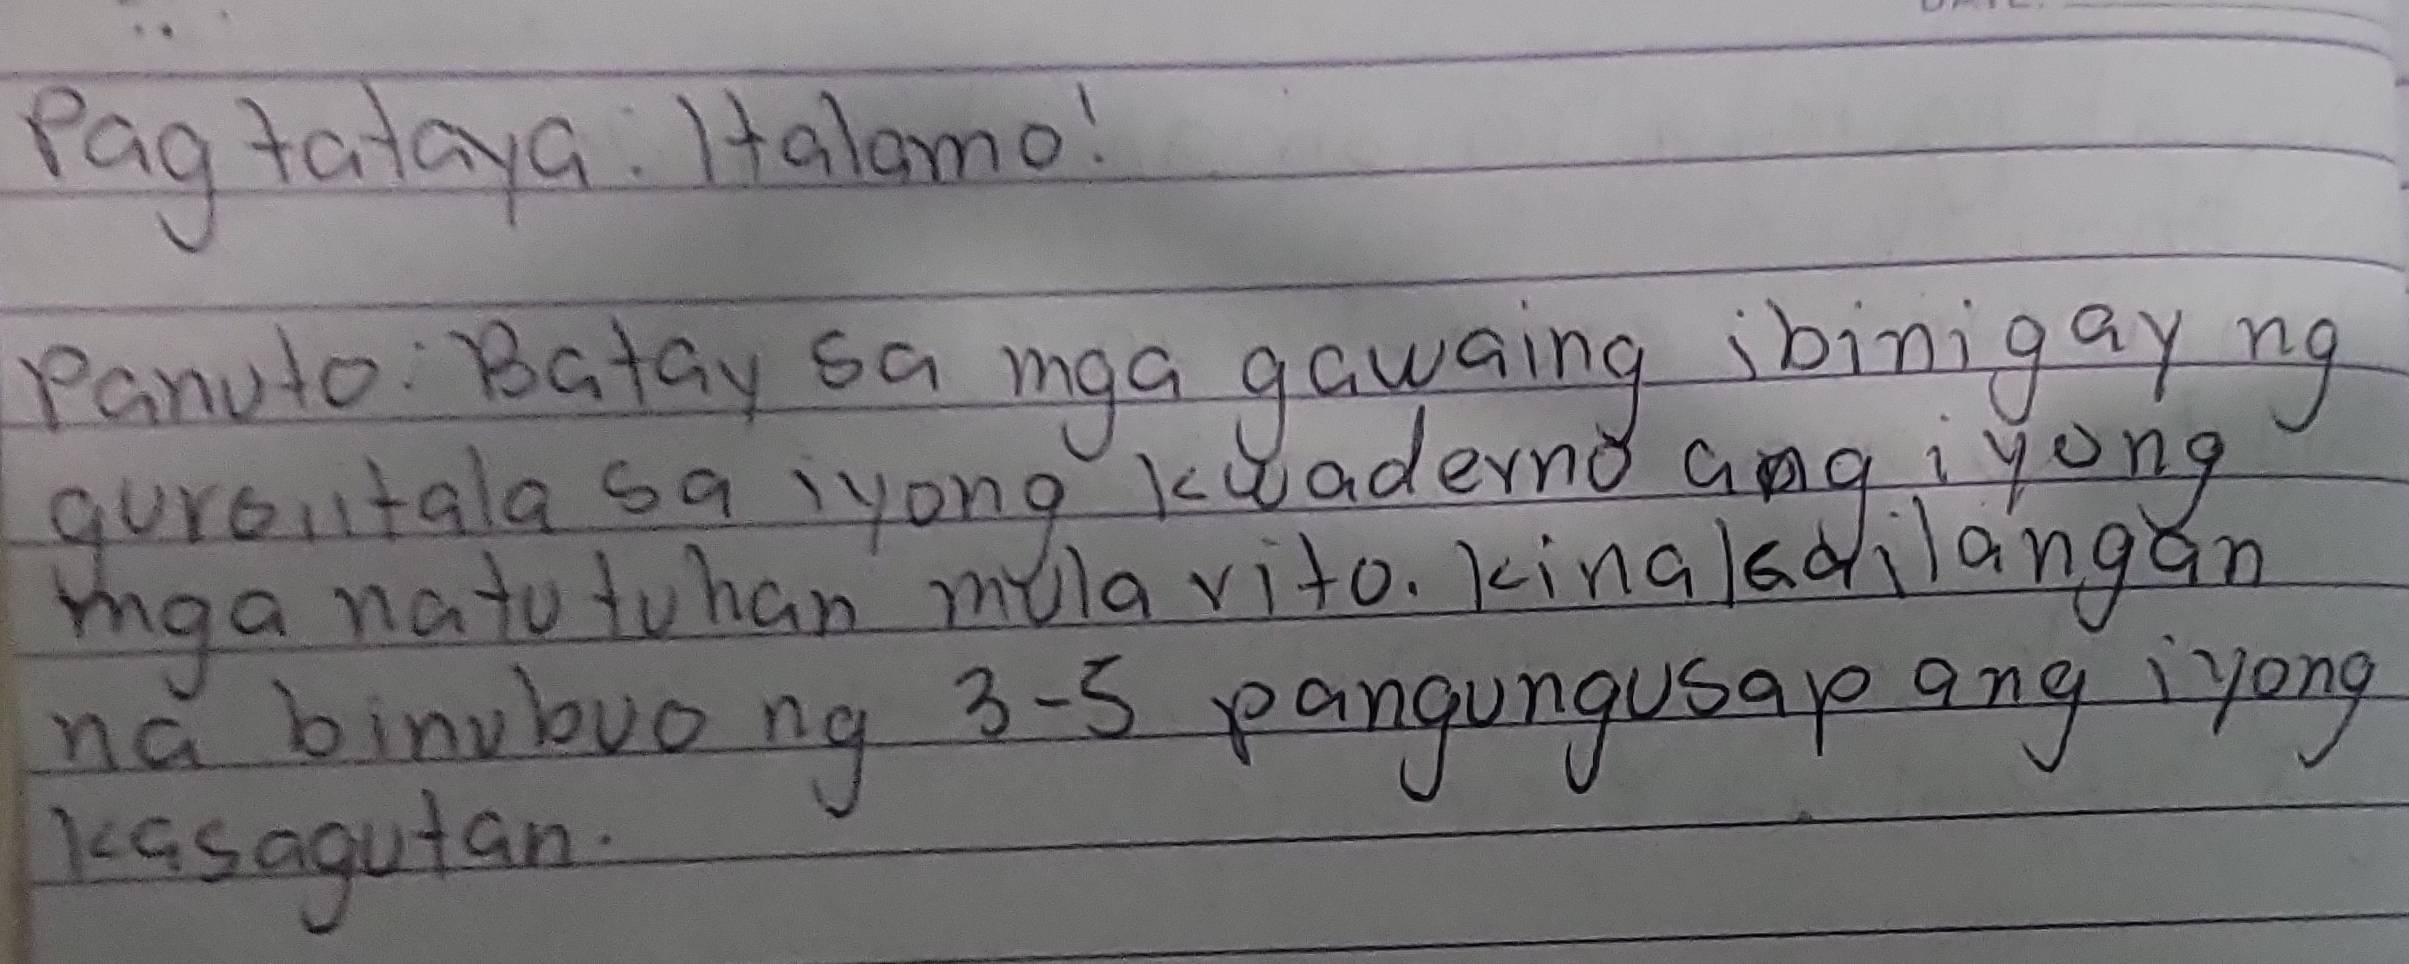 Pagtataya: Italamo!
Panuto: Batay sa mga gawaing ibinigay ng
guro, itala sa iyong kwaderno ang iyong
mga natutuhan mula rito. Kinakailangan
na binubuo ng 3-5 pangungusap ang iyong
kasagutan.